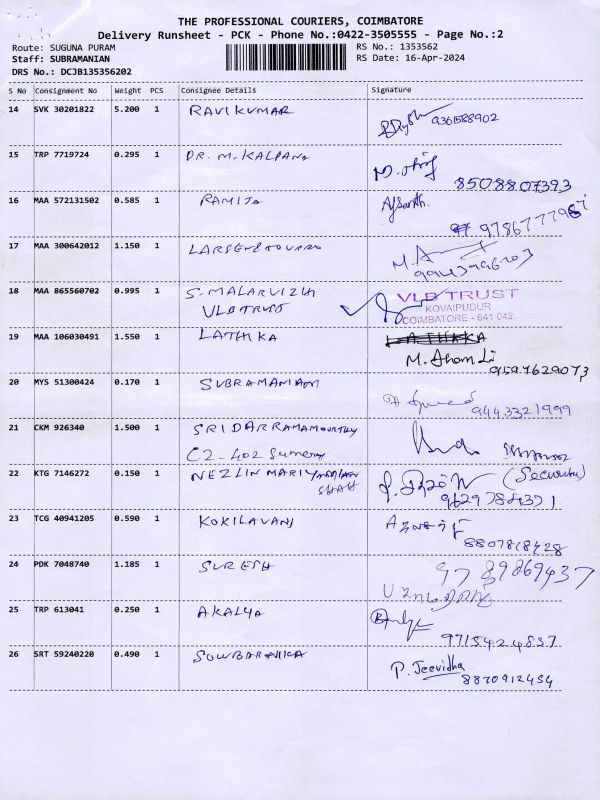 THE PROFESSIONAL COURIERS, COIMBATORE
Delivery Runsheet - PCK - Phone No.:0422-3505555 - Page No.:2
Route: SUGUNA PURAM
Staff: SUBRAMANIAN
DRS No.: DCJB135356202
RS No.: 1353562
RS Date: 16-Apr-2024
S No Consignment No Weight PCS Consignee Details Signature
14 SVK 30201822 5.200 1 RAVIKUMAR
9361588902
15 TRP 7719724 0.295 1 DR. M. KALPANA
8508807393
16 MAA 572131502 0.585 1 RAMIJA
17 MAA 300642012 1.150 1 LARSENETOUBRO
18 MAA 865560702 0.995 1 S. MALARVIZHI
VLB TRUST
VLB TRUST
KOVAIPUDUR
COIMBATORE - 641 042.
19 MAA 106030491 1.550 1 LATHIKA
9597629073
20 MYS 51300424 0.170 1 SUBRAMANIAM
9443321999
21 CKM 926340 1.500 1 SRIDARRAMAMOURTHY
C2-402
(Security)
22 KTG 7146272 0.150 1 NEZLIN
SHAH
9629784371
23 TCG 40941205 0.590 1 KOKILAVANI
8807818428
24 PDK 7048740 1.185 1 SURESH
9789869437
25 TRP 613041 0.250 1 AKALYA
9715424837
26 SRT 59240220 0.490 1 SOWBARANICA
P. Jeevidha
8870912454